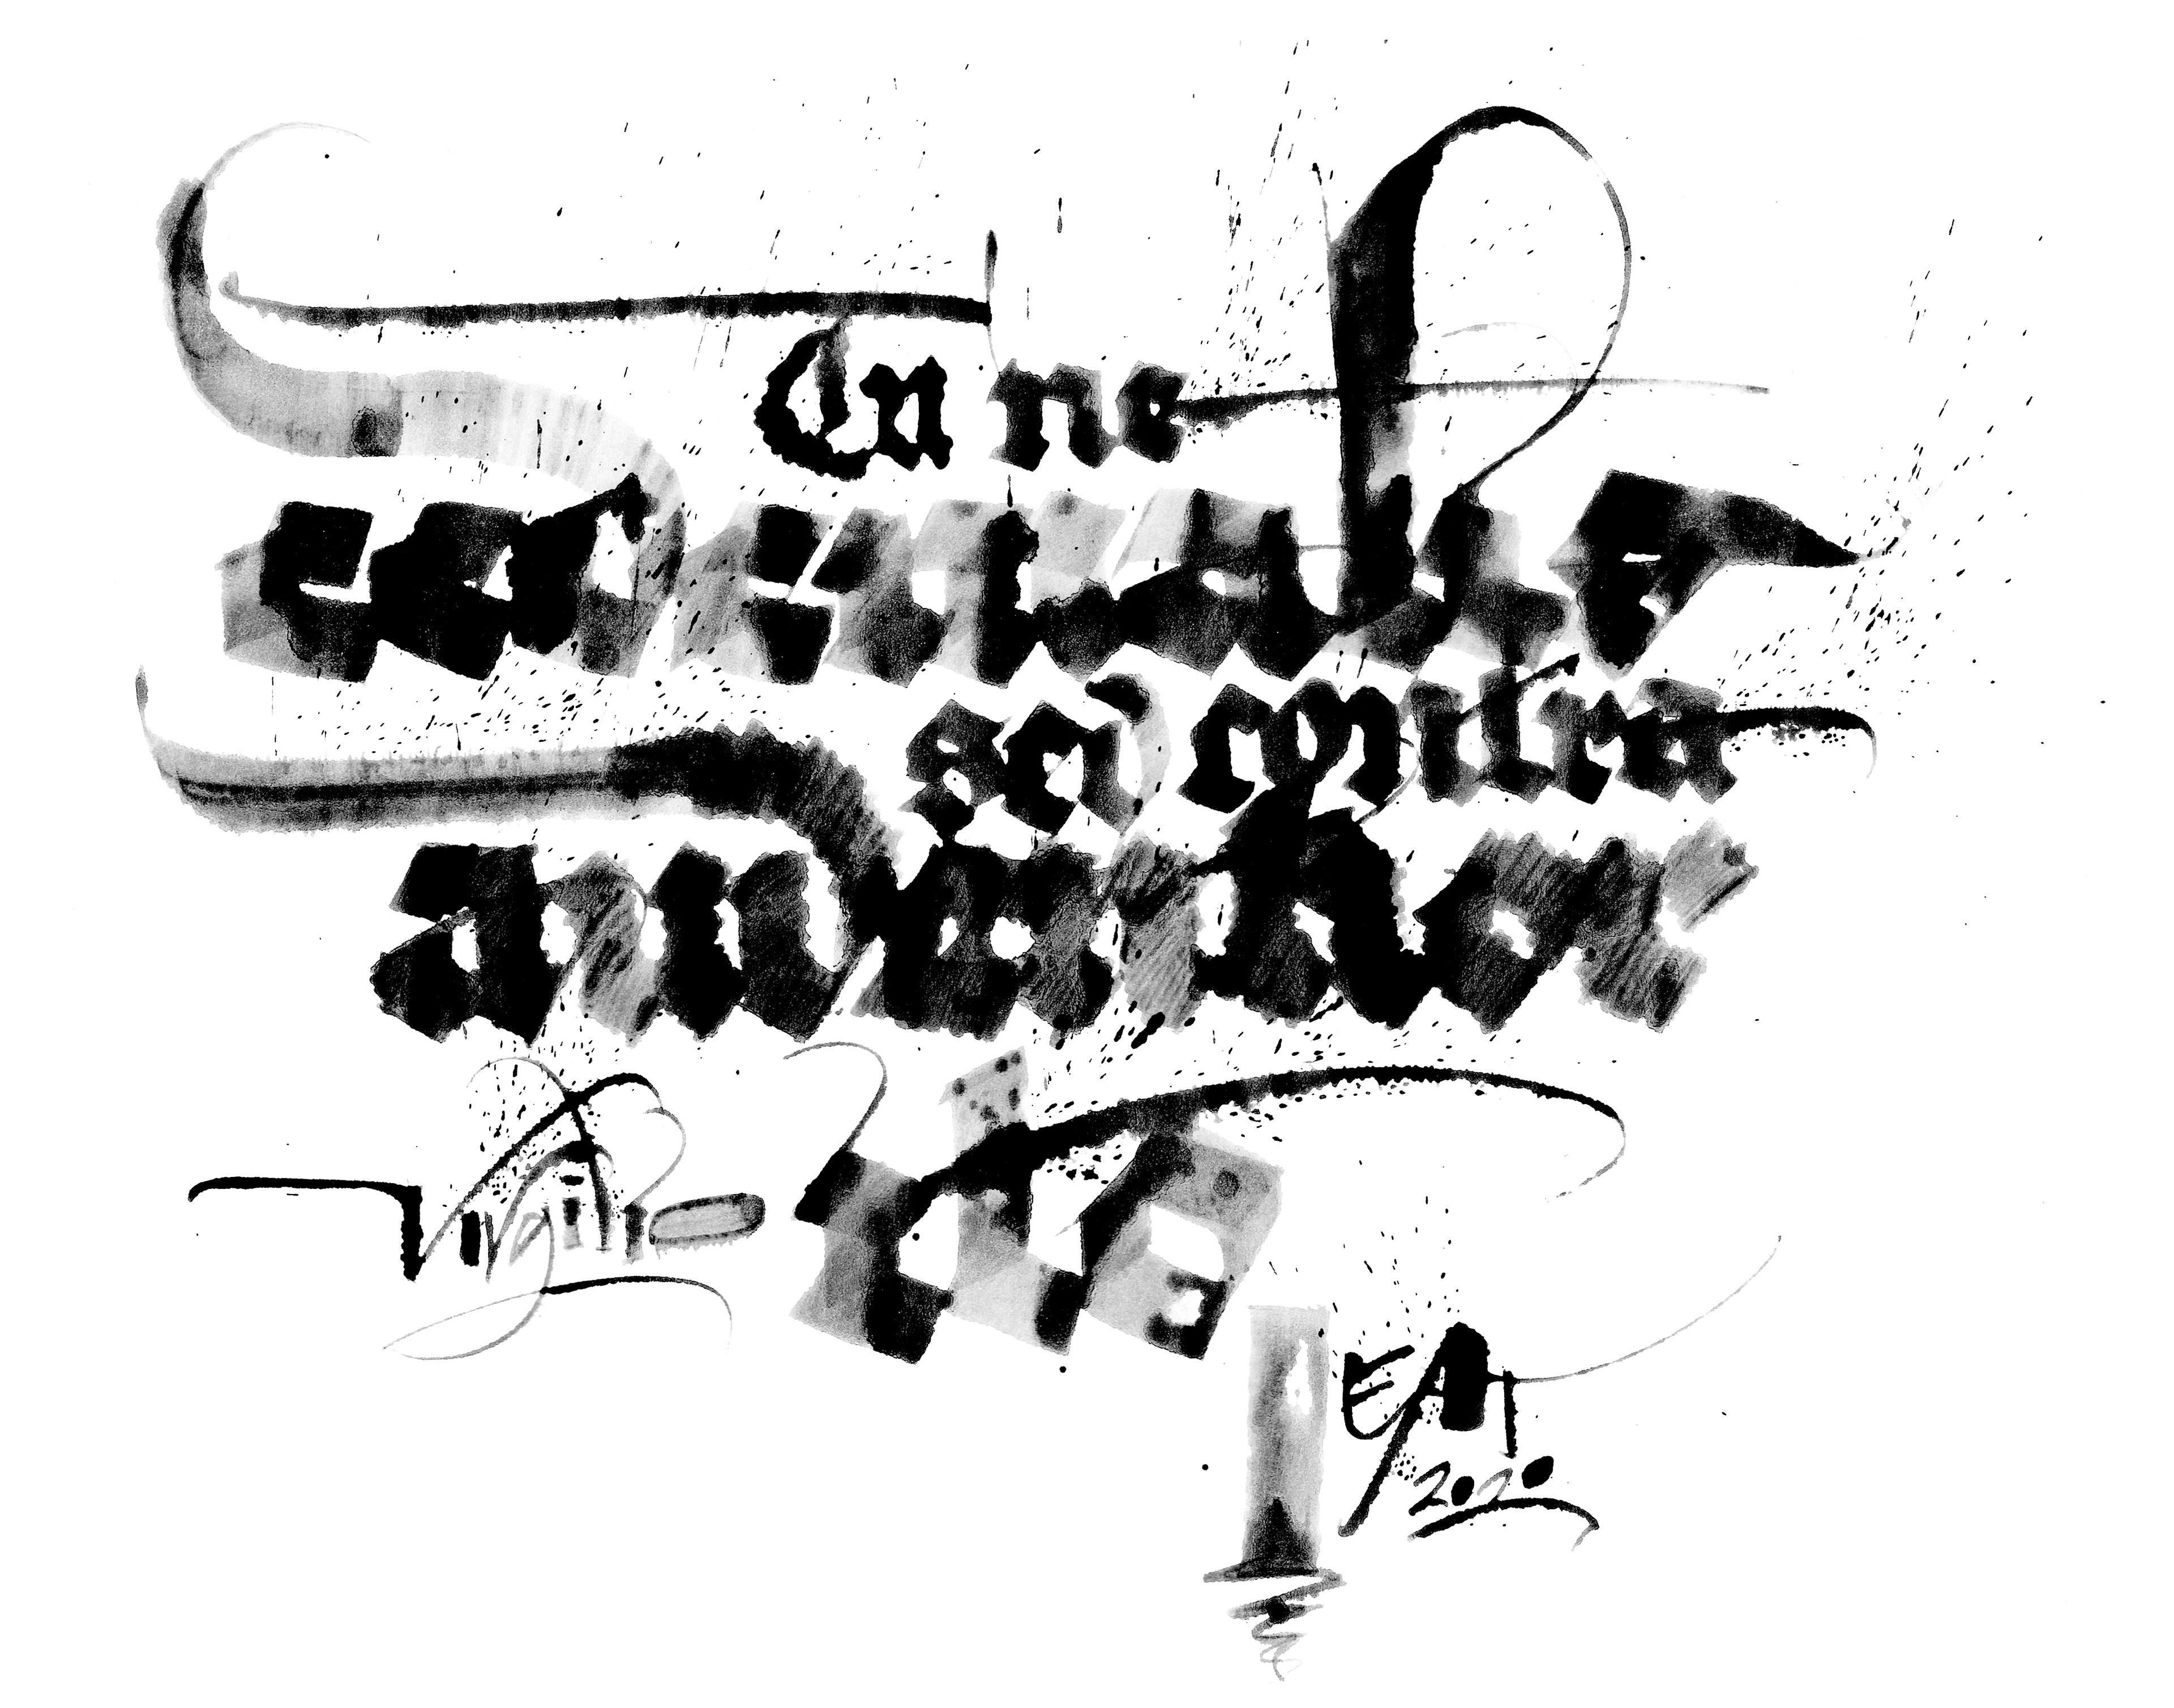 Tu ne
cede malis
sed contra
audentior
ito
Virgilio
2020